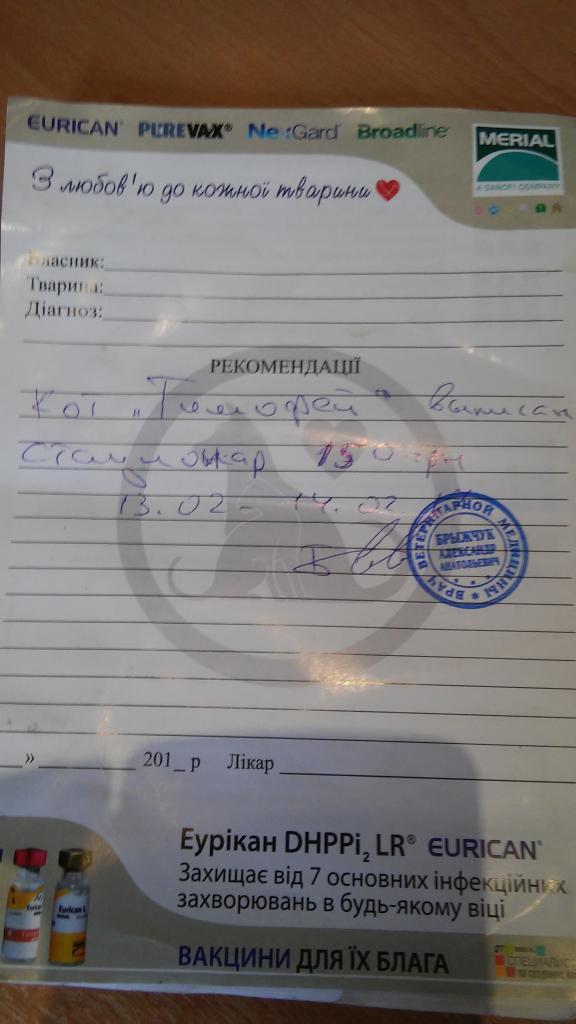 EURICAN® PUREVAX® NexGard® Broadline®
MERIAL
A SANOFI COMPANY
З любов'ю до кожної тварини
Власник:
Тварина:
Діагноз:
РЕКОМЕНДАЦІЇ
Кот „Тимофей" выписан
Стационар 150 грн
13.02 - 14.02
ВРАЧ ВЕТЕРИНАРНОЙ МЕДИЦИНЫ
БРЫЖЧУК
АЛЕКСАНДР
АНАТОЛЬЕВИЧ
» 201_ р Лікар
Еурікан DHPPi2 LR® EURICAN®
Захищає від 7 основних інфекційних
захворювань в будь-якому віці
ВАКЦИНИ ДЛЯ ЇХ БЛАГА